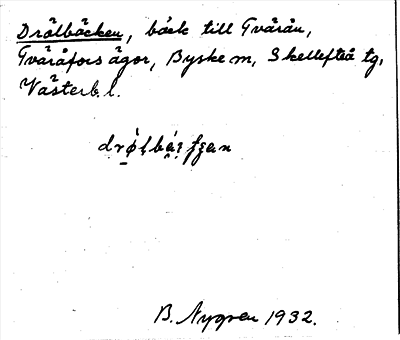 Drålbäcken, bäck till Tvärån,
Tväråfors ägor, Byske m, Skellefteå tg,
Västerb. l.
B. Nygren 1932.